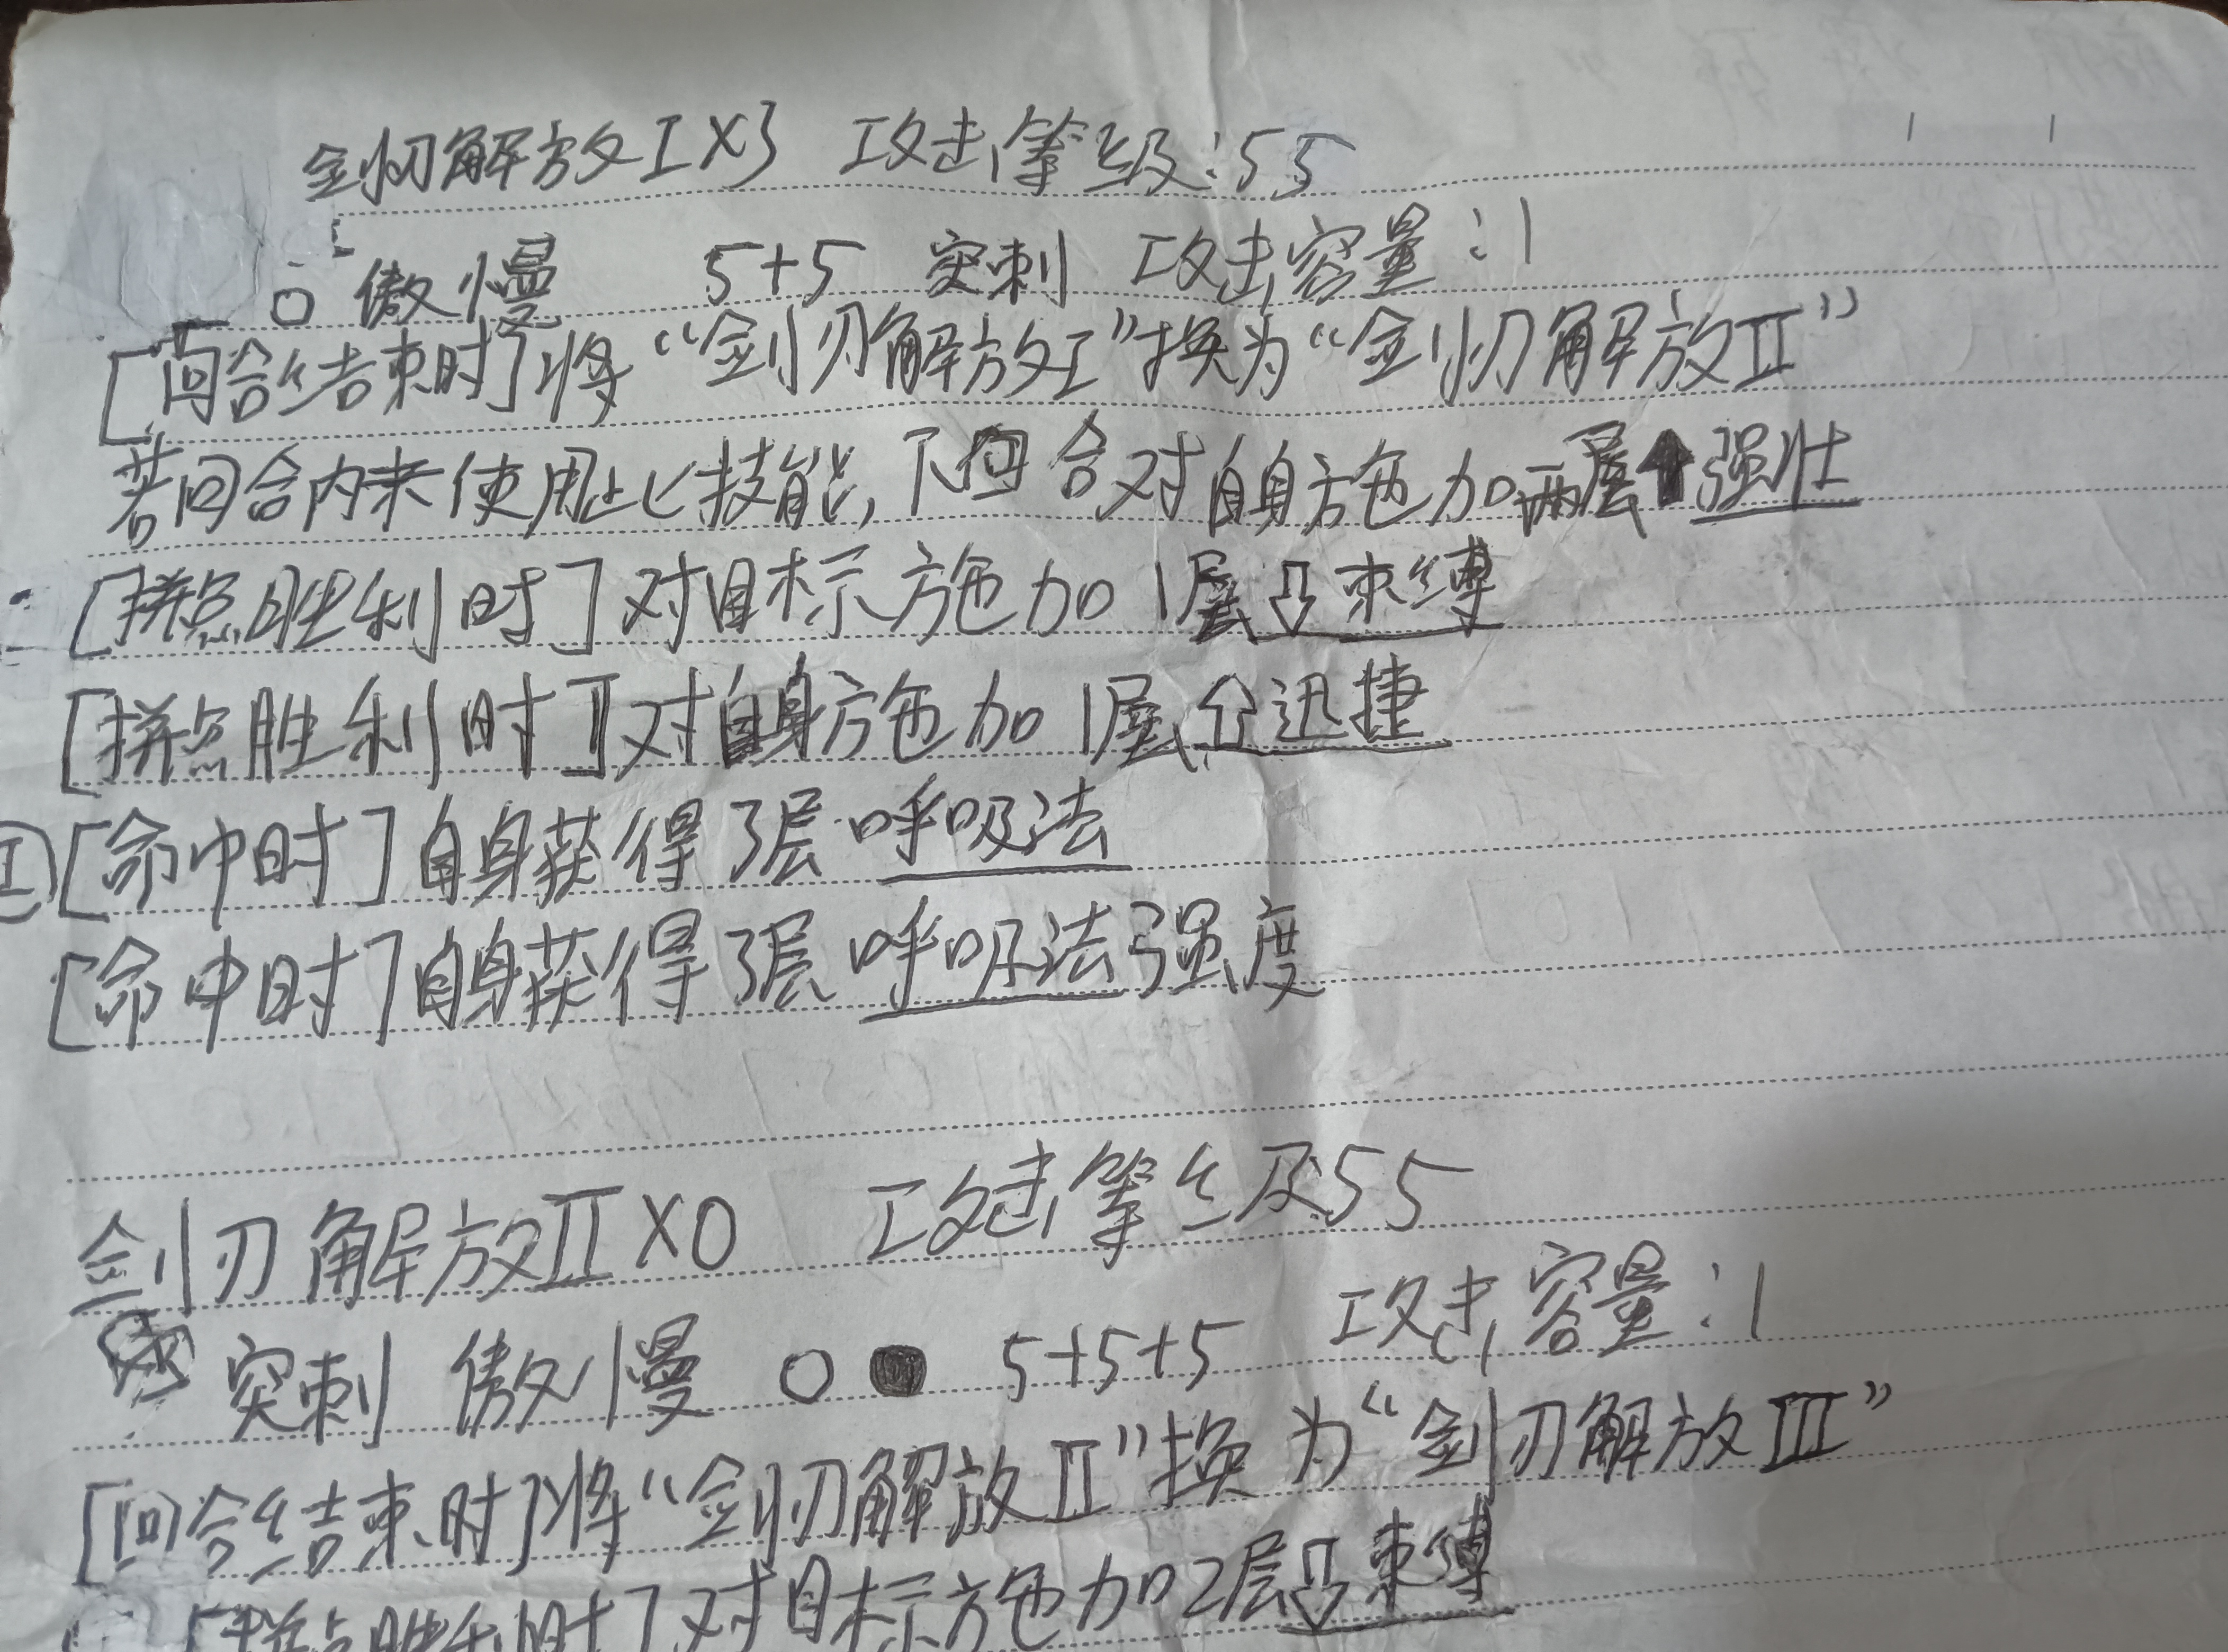 剑刃解放I×3 攻击等级:55
○ 傲慢 5+5 突刺 攻击容量:1
[回合结束时]将“剑刃解放I”换为“剑刃解放II”
若回合内未使用此技能,下回合对自身施加两层⬆强壮
[拼点胜利时]对目标施加1层⇩束缚
[拼点胜利时]对自身施加1层⇧迅捷
Ⓘ[命中时]自身获得3层呼吸法
[命中时]自身获得3层呼吸法强度
剑刃解放II×0 攻击等级55
突刺 傲慢 ○● 5+5+5 攻击容量:1
[回合结束时]将“剑刃解放II”换为“剑刃解放III”
[拼点胜利时]对目标施加2层⇩束缚